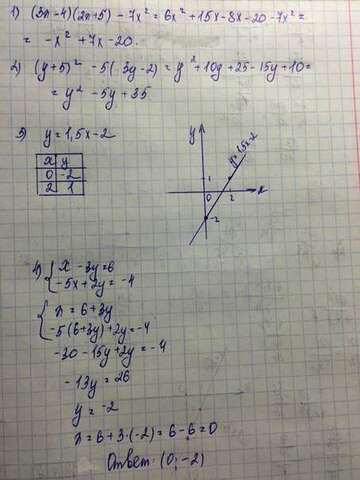 1) (3x-4)(2x+5) - 7x² = 6x² + 15x - 8x - 20 - 7x² =
= -x² + 7x - 20.
2) (y+5)² - 5(3y-2) = y² + 10y + 25 - 15y + 10 =
= y² - 5y + 35
3) y = 1,5x - 2
x y
0 -2
2 1
y
y=1,5x-2
1
x
0 2
-2
4) { x - 3y = 6
-5x + 2y = -4
{ x = 6 + 3y
-5(6+3y) + 2y = -4
-30 - 15y + 2y = -4
-13y = 26
y = -2
x = 6 + 3·(-2) = 6 - 6 = 0
Ответ: (0; -2)